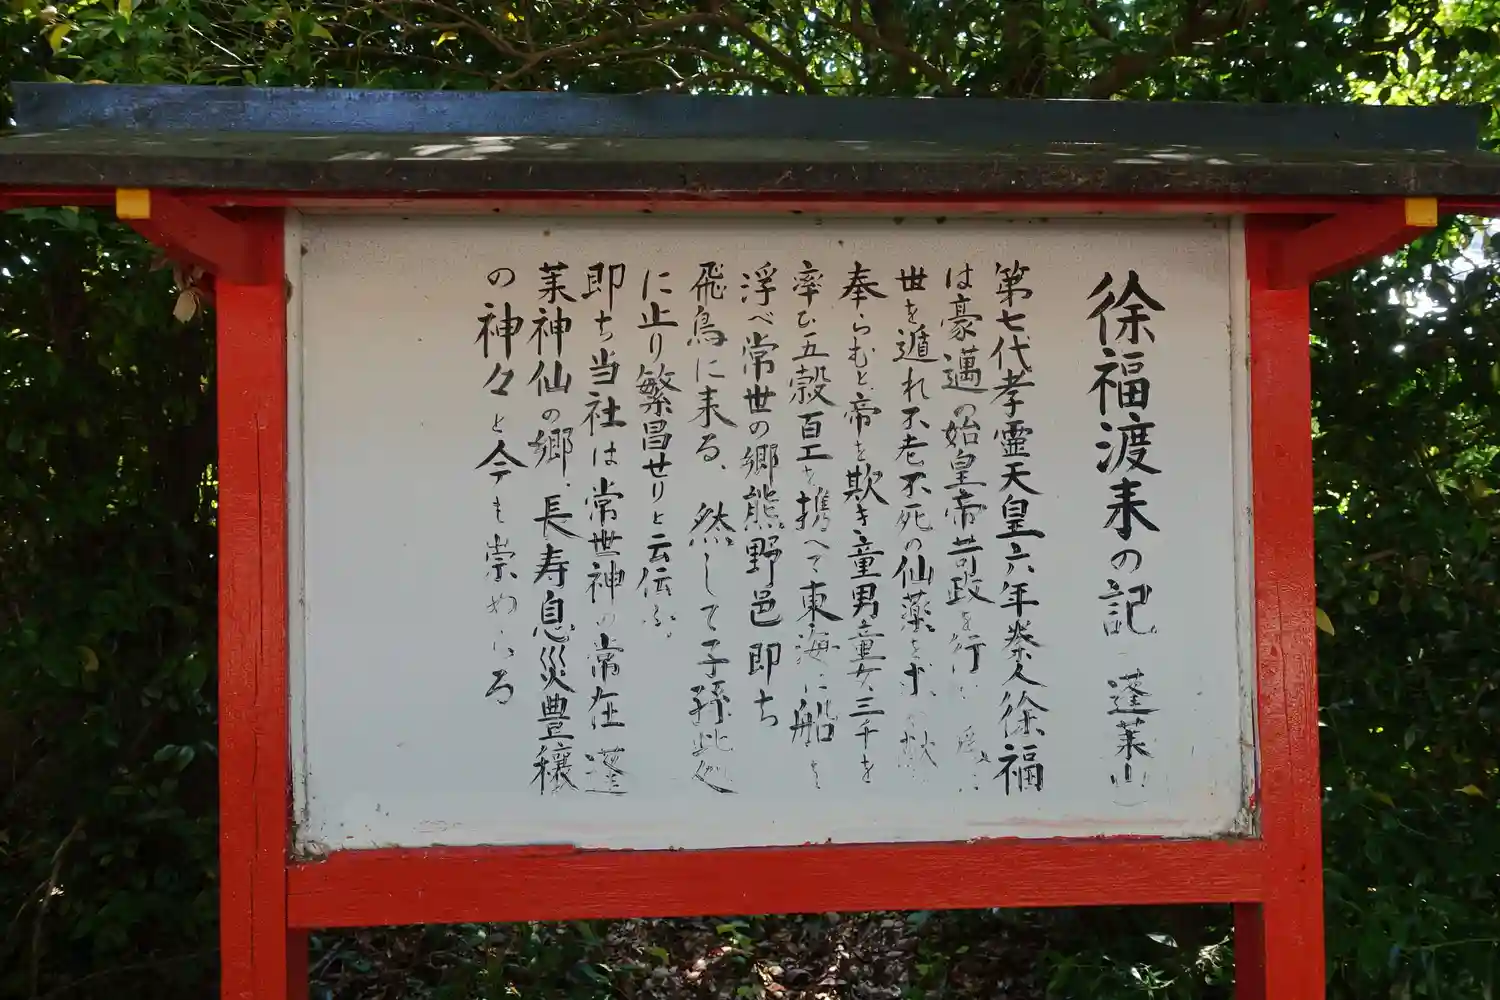 徐福渡来の記（蓬莱山）
第七代孝霊天皇六年秦人徐福
は豪邁の始皇帝苛政を行
世を遁れ不老不死の仙薬を求
奉らむと帝を欺き童男童女三千を
率ひ五穀百工を携へて東海に船を
浮べ常世の郷熊野邑即ち
飛鳥に来る、然して子孫此処
に止り繁昌せりと云伝ふ。
即ち当社は常世神の常在蓬
莱神仙の郷、長寿息災豊穣
の神々と今も崇めらる